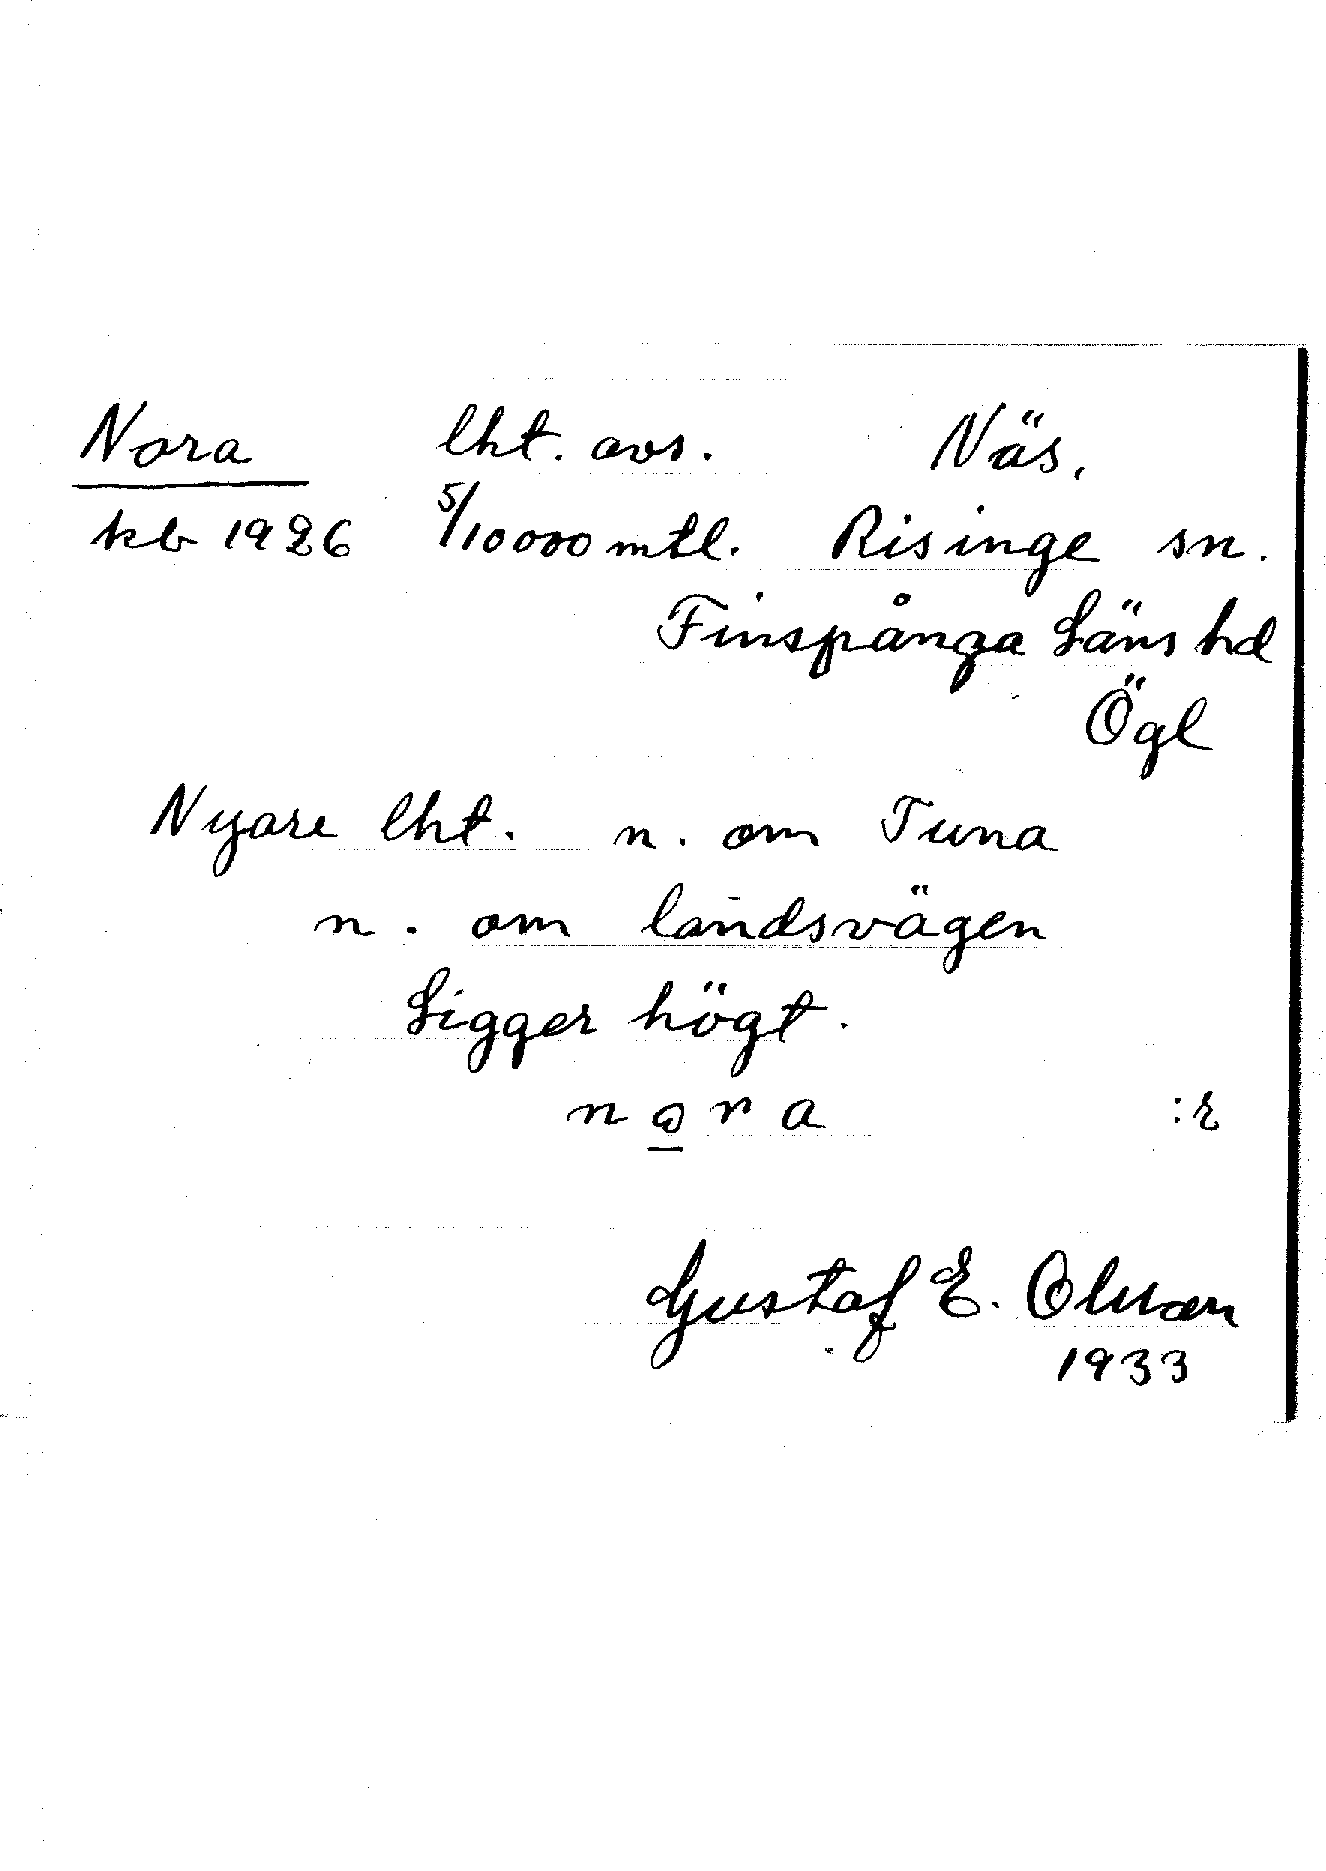 Nora lht. avs. Näs.
kb 1926 5/10000 mtl. Risinge sn.
Finspånga Läns hd
Ögl
Nyare lht. n. om Tuna
n. om landsvägen
Ligger högt.
nora :r
Gustaf E.
1933